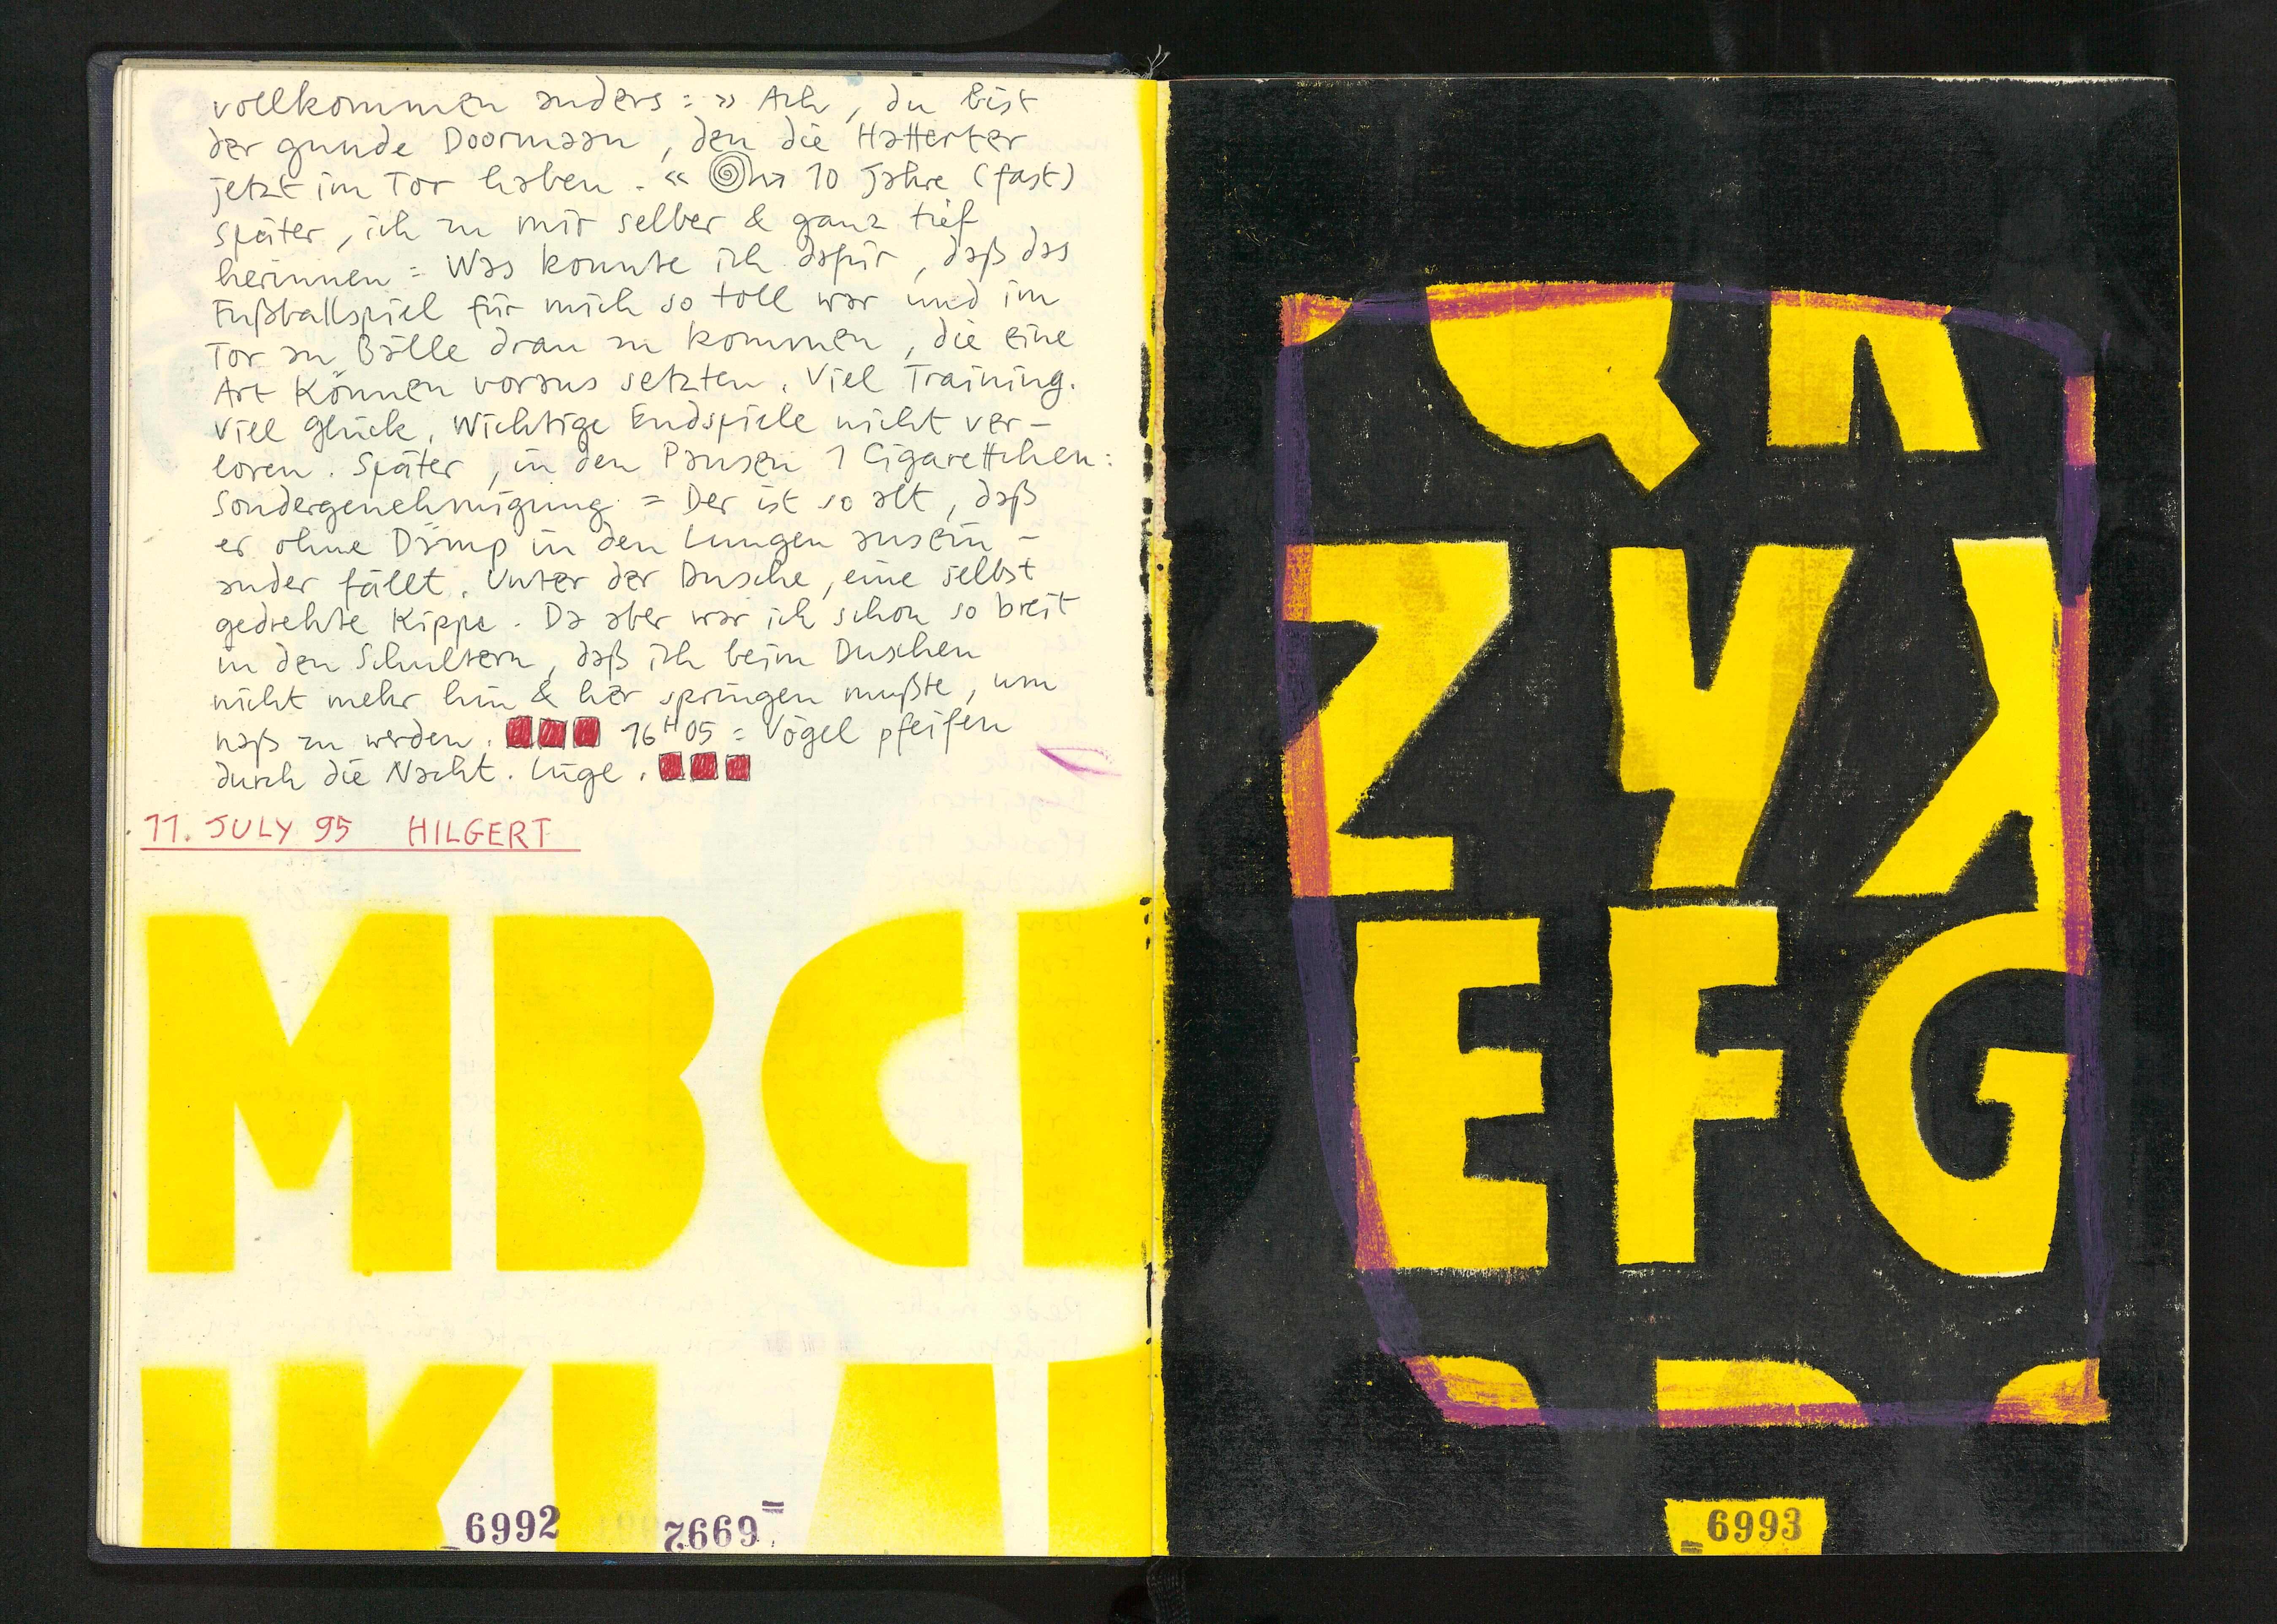 vollkommen anders = » Ach, du bist
der gunde Doormaan, den die Hatterter
jetzt im Tor haben. « 10 Jahre (fast)
später, ich zu mir selber & ganz tief
herinnen = Was konnte ich dafür, daß das
Fußballspiel für mich so toll war und im
Tor zu Bälle dran zu kommen, die eine
Art Können voraus setzten. Viel Training.
Viel Glück, Wichtige Endspiele nicht ver-
loren. Später, in den Pausen 1 Cigarettchen:
Sondergenehmigung = Der ist so alt, daß
er ohne Dämp in den Lungen ausein-
ander fällt. Unter der Dusche, eine selbst
gedrehte Kippe. Da aber war ich schon so breit
in den Schultern, daß ich beim Duschen
nicht mehr hin & her springen mußte, um
naß zu werden. 16H05 = Vögel pfeifen
durch die Nacht. Lüge.
11. JULY 95 HILGERT
MBC
6992 6992
ZYX
EFG
6993